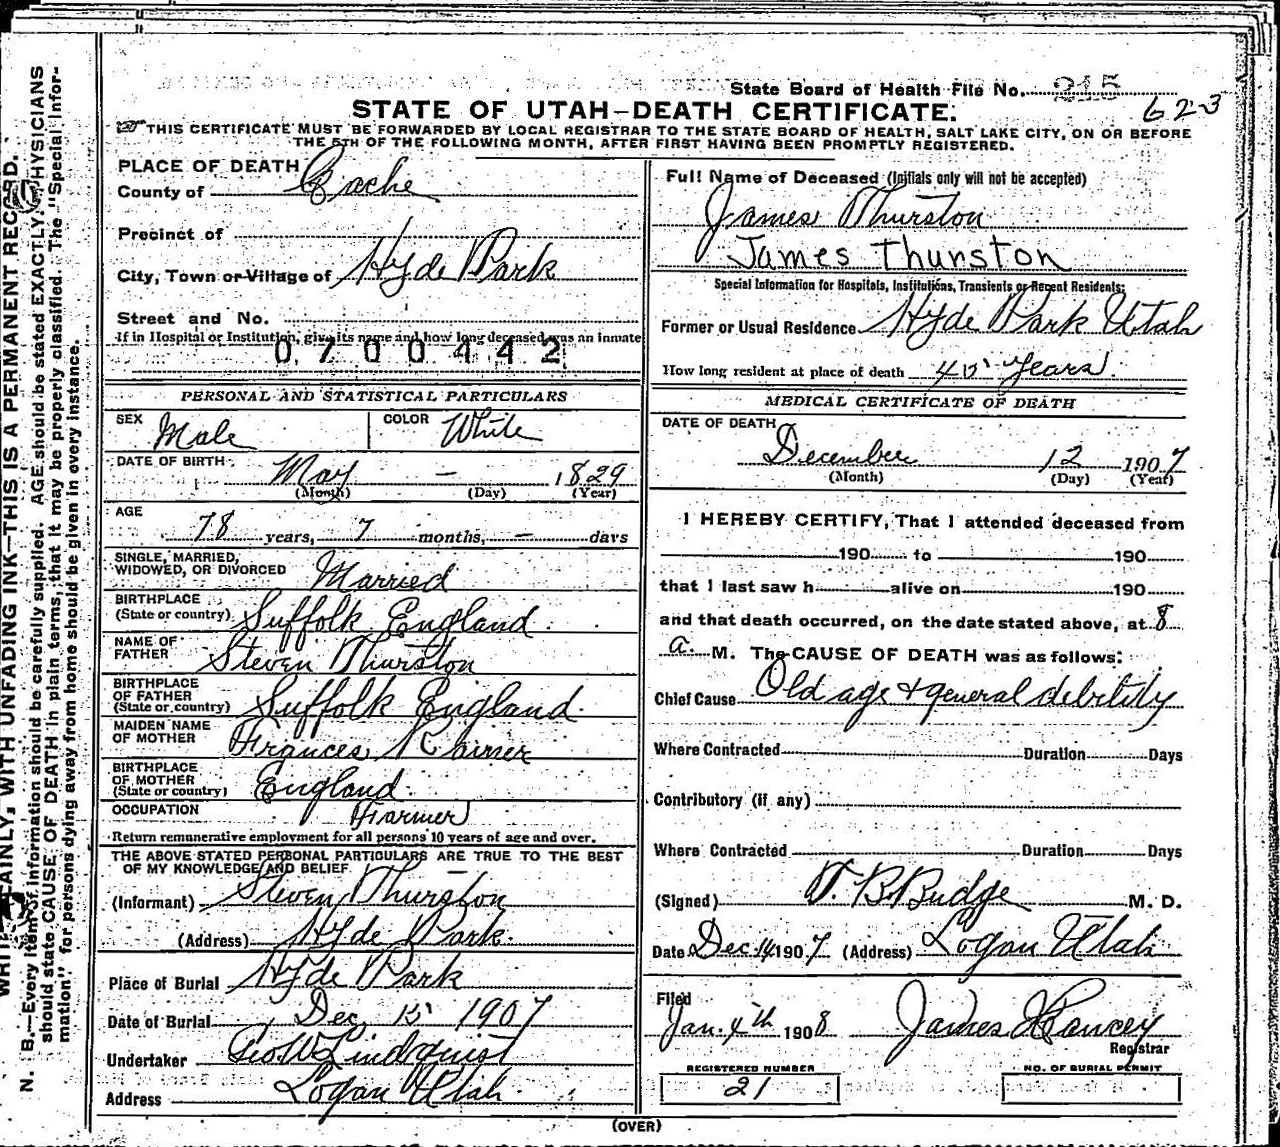 State Board of Health File No. 215
623
STATE OF UTAH—DEATH CERTIFICATE.
THIS CERTIFICATE MUST BE FORWARDED BY LOCAL REGISTRAR TO THE STATE BOARD OF HEALTH, SALT LAKE CITY, ON OR BEFORE
THE 5TH OF THE FOLLOWING MONTH, AFTER FIRST HAVING BEEN PROMPTLY REGISTERED.
PLACE OF DEATH
County of Cache
Precinct of
City, Town or Village of Hyde Park
Street and No.
If in Hospital or Institution, give its name and how long deceased was an inmate
0700442
PERSONAL AND STATISTICAL PARTICULARS
SEX Male COLOR White
DATE OF BIRTH May — 1829
(Month) (Day) (Year)
AGE
78 years, 7 months, — days
SINGLE, MARRIED,
WIDOWED, OR DIVORCED Married
BIRTHPLACE
(State or country) Suffolk England
NAME OF
FATHER Steven Thurston
BIRTHPLACE
OF FATHER
(State or country) Suffolk England.
MAIDEN NAME
OF MOTHER Frances Rainer
BIRTHPLACE
OF MOTHER
(State or country) England.
OCCUPATION Farmer
Return remunerative employment for all persons 10 years of age and over.
THE ABOVE STATED PERSONAL PARTICULARS ARE TRUE TO THE BEST
OF MY KNOWLEDGE AND BELIEF
(Informant) Steven Thurston
(Address) Hyde Park.
Place of Burial Hyde Park
Date of Burial Dec 15 1907
Undertaker Geo W Lindquist
Address Logan Utah.
Full Name of Deceased (Initials only will not be accepted)
James Thurston
James Thurston
Special Information for Hospitals, Institutions, Transients or Recent Residents:
Former or Usual Residence Hyde Park Utah
How long resident at place of death 45 years.
MEDICAL CERTIFICATE OF DEATH
DATE OF DEATH
December 12 1907
(Month) (Day) (Year)
I HEREBY CERTIFY, That I attended deceased from
190 to 190
that I last saw h alive on 190
and that death occurred, on the date stated above, at 8
a. M. The CAUSE OF DEATH was as follows:
Chief Cause Old age & general debility
Where Contracted Duration Days
Contributory (if any)
Where Contracted Duration Days
(Signed) T. B. Budge M. D.
Date Dec 14 1907 (Address) Logan Utah
Filed
Jan. 4th 1908 James Hancey
Registrar
REGISTERED NUMBER
21
NO. OF BURIAL PERMIT
(OVER)
WRITE PLAINLY, WITH UNFADING INK—THIS IS A PERMANENT RECORD.
N. B.—Every item of information should be carefully supplied. AGE should be stated EXACTLY. PHYSICIANS
should state CAUSE OF DEATH in plain terms, that it may be properly classified. The "Special Infor-
mation" for persons dying away from home should be given in every instance.